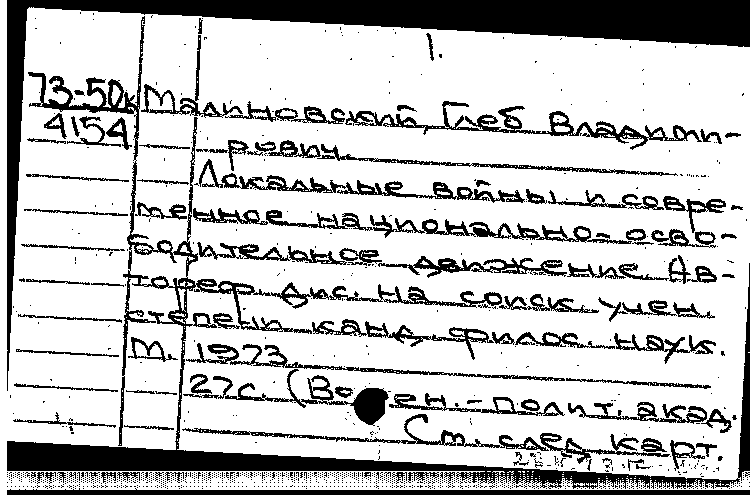 1.
73-50к Малиновский, Глеб Владими-
4154
рович.
Локальные войны и совре-
менное национально-осво-
бодительное движение. Ав-
тореф. дис. на соиск. учен.
степени канд. филос. наук.
М. 1973.
27с. (Воен.-полит. акад.
См. след. карт.